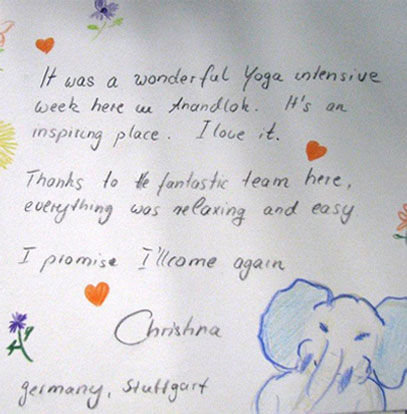 It was a wonderful Yoga intensive
week here in Anandlok. It's an
inspiring place. I love it.
Thanks to the fantastic team here,
everything was relaxing and easy
I promise I'll come again
Christina
germany, Stuttgart